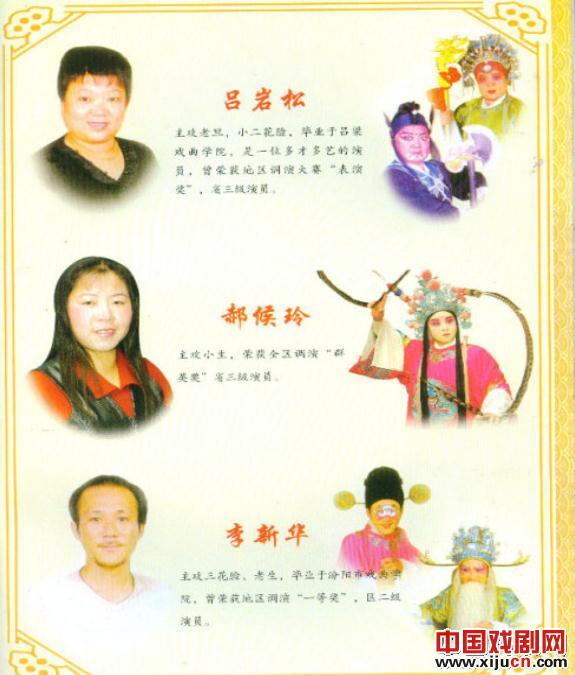 吕岩松
主攻老旦，小二花脸，毕业于吕梁
戏曲学院，是一位多才多艺的演
员，曾荣获地区调演大赛“表演
奖”，省三级演员。
郝候玲
主攻小生，荣获全区调演“群
英奖”省三级演员。
李新华
主攻三花脸、老生，毕业于汾阳市戏曲学
院，曾荣获地区调演“一等奖”，区二级
演员。
中国戏剧网
www.xijucn.com